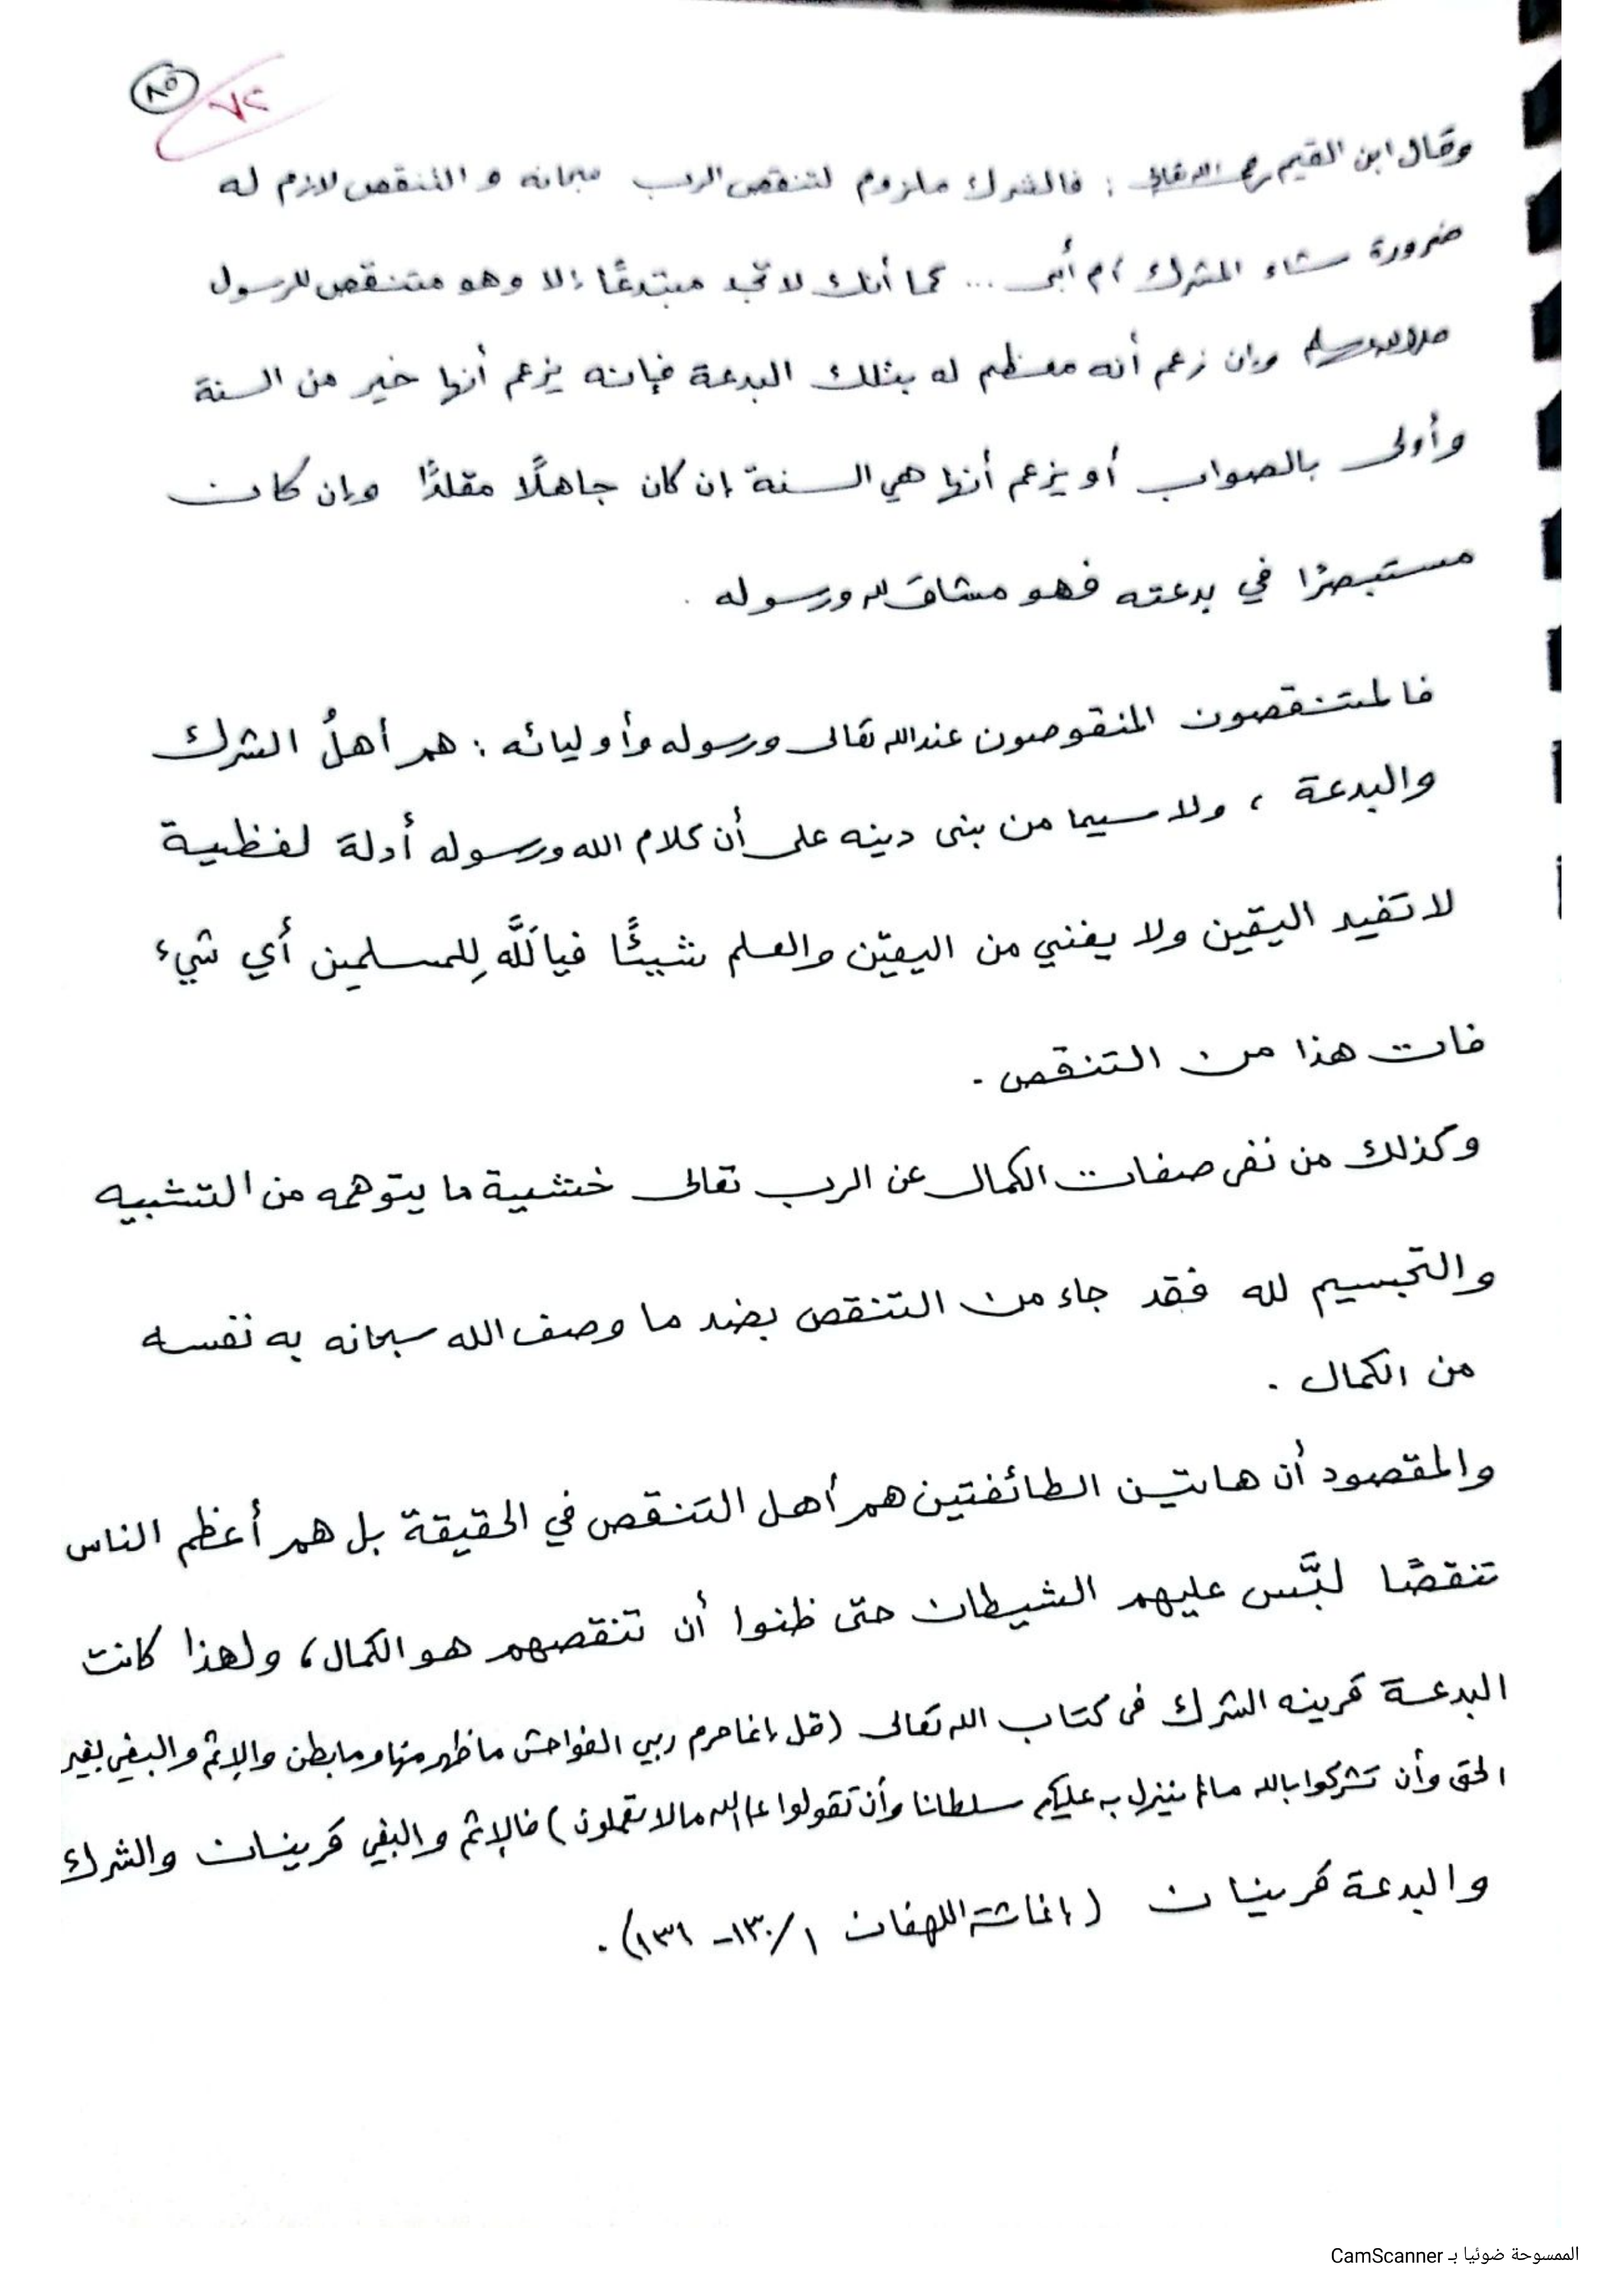 ٨٥
٧٢
وقال ابن القيم رحمه الله تعالى : فالشرك ملزوم لتنقص الرب سبحانه و التنقص لازم له
ضرورة شاء المشرك أم أبى ... كما أنك لا تجد مبتدعًا إلا وهو متنقص للرسول
صلى الله عليه وسلم وإن زعم أنه معظم له بتلك البدعة فإنه يزعم أنها خير من السنة
وأولى بالصواب أو يزعم أنها هي السنة إن كان جاهلًا مقلدًا وإن كان
مستبصرًا في بدعته فهو مشاق لله ورسوله .
فالمتنقصون المنقوصون عند الله تعالى ورسوله وأوليائه : هم أهلُ الشرك
والبدعة ، ولا سيما من بنى دينه على أن كلام الله ورسوله أدلة لفظية
لا تفيد اليقين ولا يغني من اليقين والعلم شيئًا فيا لَلَّه لِلمسلمين أي شيء
فات هذا من التنقص .
وكذلك من نفى صفات الكمال عن الرب تعالى خشية ما يتوهمه من التشبيه
والتجسيم لله فقد جاء من التنقص بضد ما وصف الله سبحانه به نفسه
من الكمال .
والمقصود أن هاتين الطائفتين هم أهل التنقص في الحقيقة بل هم أعظم الناس
تنقصًا لبَّس عليهم الشيطان حتى ظنوا أن تنقصهم هو الكمال، ولهذا كانت
البدعة قرينه الشرك فى كتاب الله تعالى (قل إنما حرم ربي الفواحش ما ظهر منها وما بطن والإثم والبغي بغير
الحق وأن تشركوا بالله مالم ينزل به عليكم سلطانا وأن تقولوا على الله مالا تعلمون) فالإثم والبغي قرينان والشرك
والبدعة قرينان (إغاثة اللهفان ١/ ١٣٠ـ ١٣١) .
الممسوحة ضوئيا بـ CamScanner